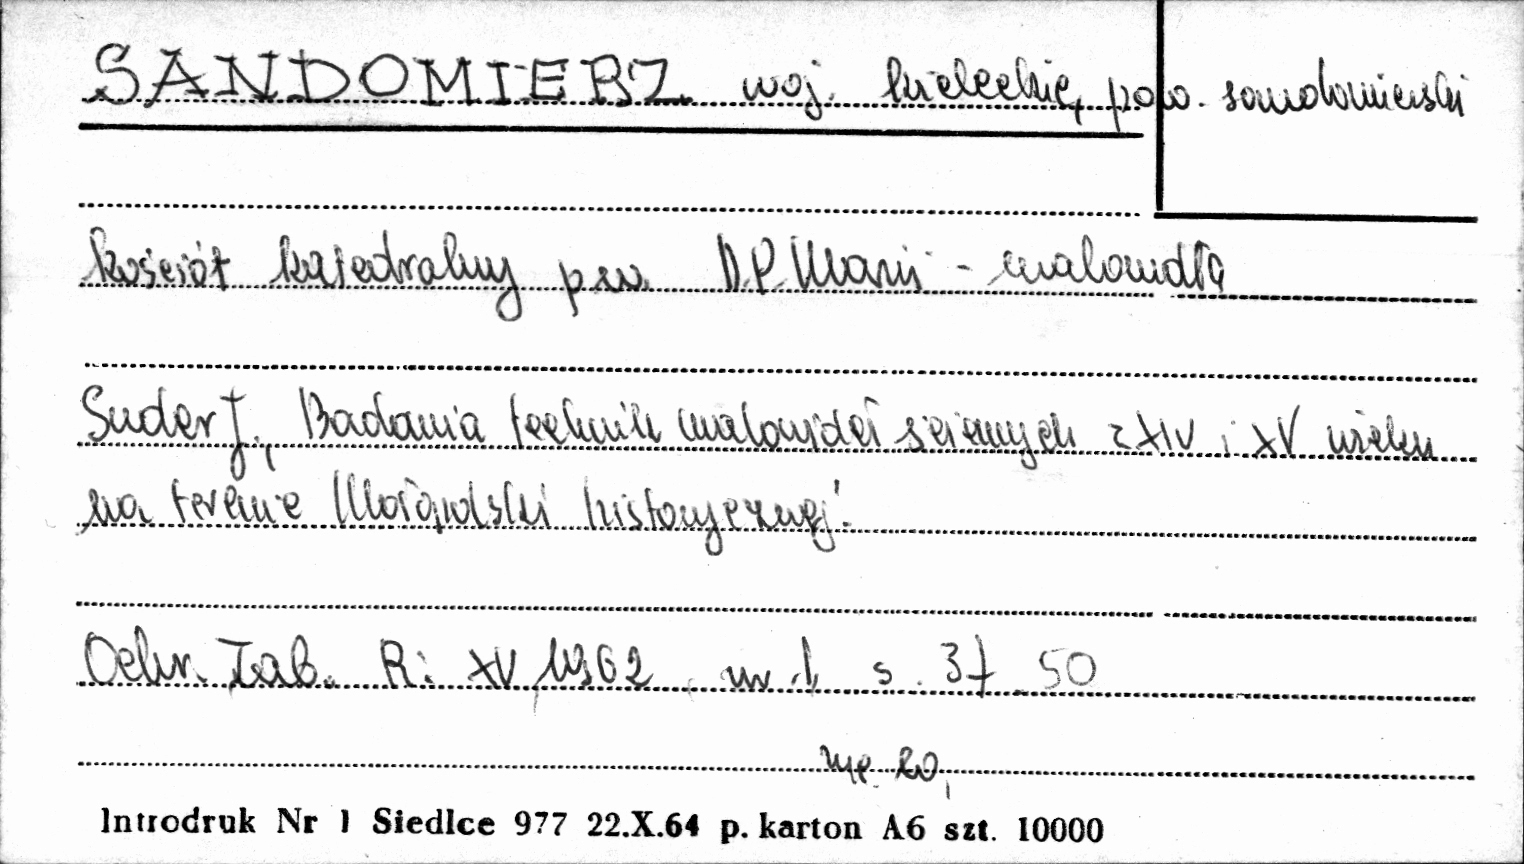 SANDOMIERZ woj. kieleckie, pow. sandomierski
kościół katedralny p.w. N.P. Marii - malowidła
Suder J., Badania technik malowideł ściennych z XIV i XV wieku
na terenie Małopolski historycznej.
Ochr. Zab. R: XV, 1962, nr 1, s. 37-50
ryc. 20,
Introdruk Nr 1 Siedlce 977 22.X.64 p. karton A6 szt. 10000